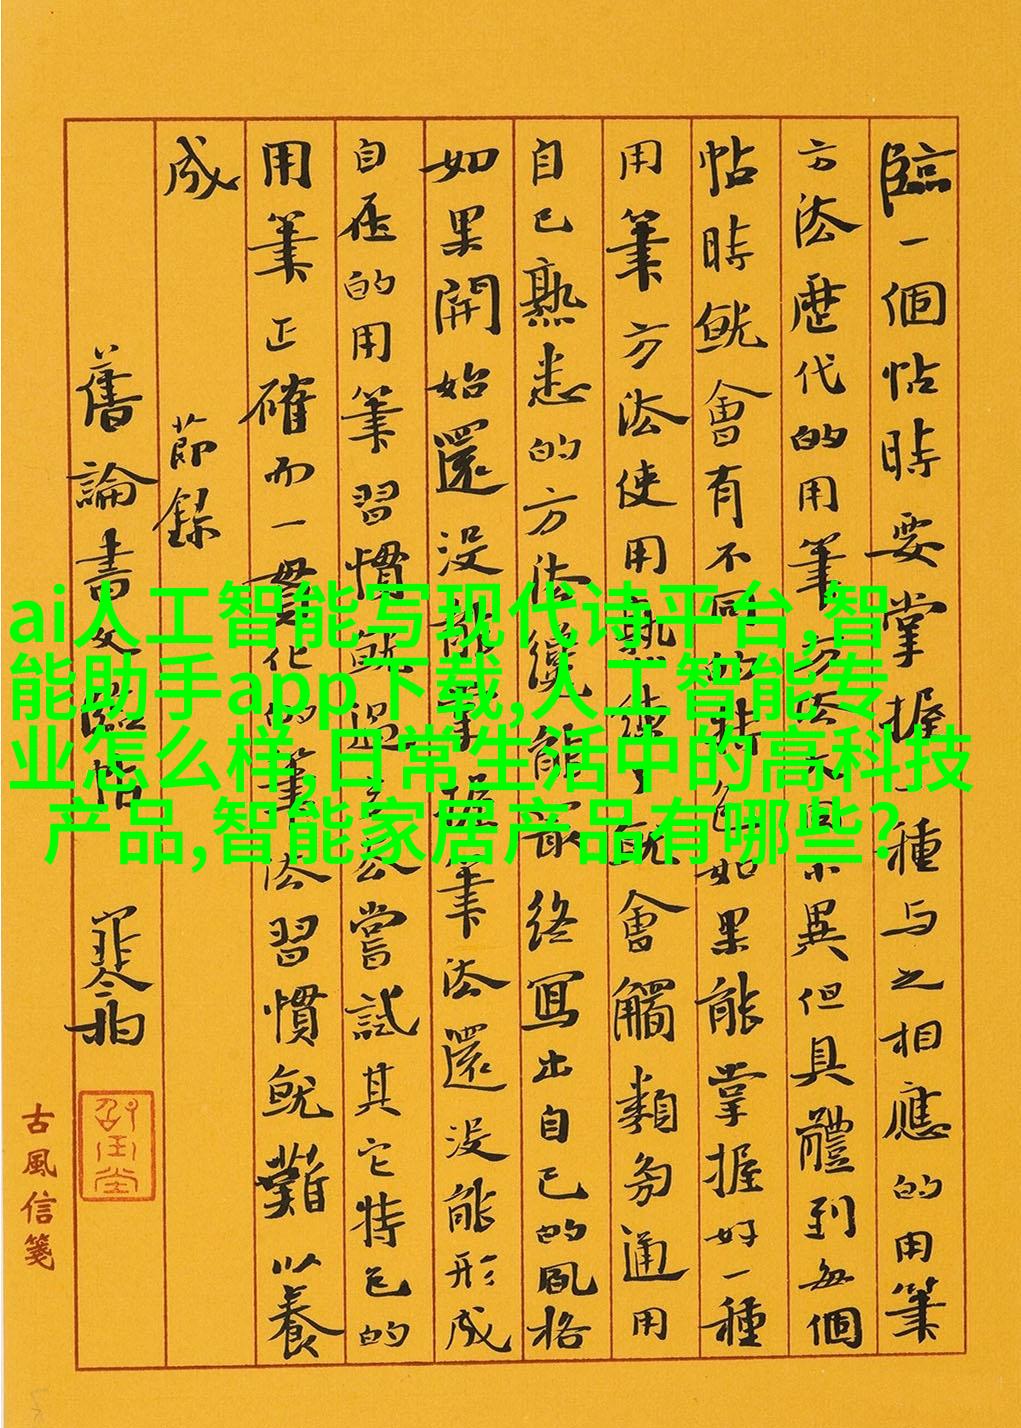 臨一個帖時要掌握一種与之相應的用筆
方法歷代的用筆方法大同小異但具體到每個
帖時就會有不同的特色如果能掌握好一種
用筆方法使用熟練了就會觸類旁通用
自己熟悉的方法纔能最終寫出自己的風格
如果開始還沒能掌握筆法還沒能形成
自在的用筆習慣就過嘗試其它特色的
用筆正確而一貫化的筆法習慣就難以養
成 節錄
舊論書文臨帖
古風信箋
ai人工智能写现代诗平台,智
能助手app下载,人工智能专
业怎么样,日常生活中的高科技
产品,智能家居产品有哪些?